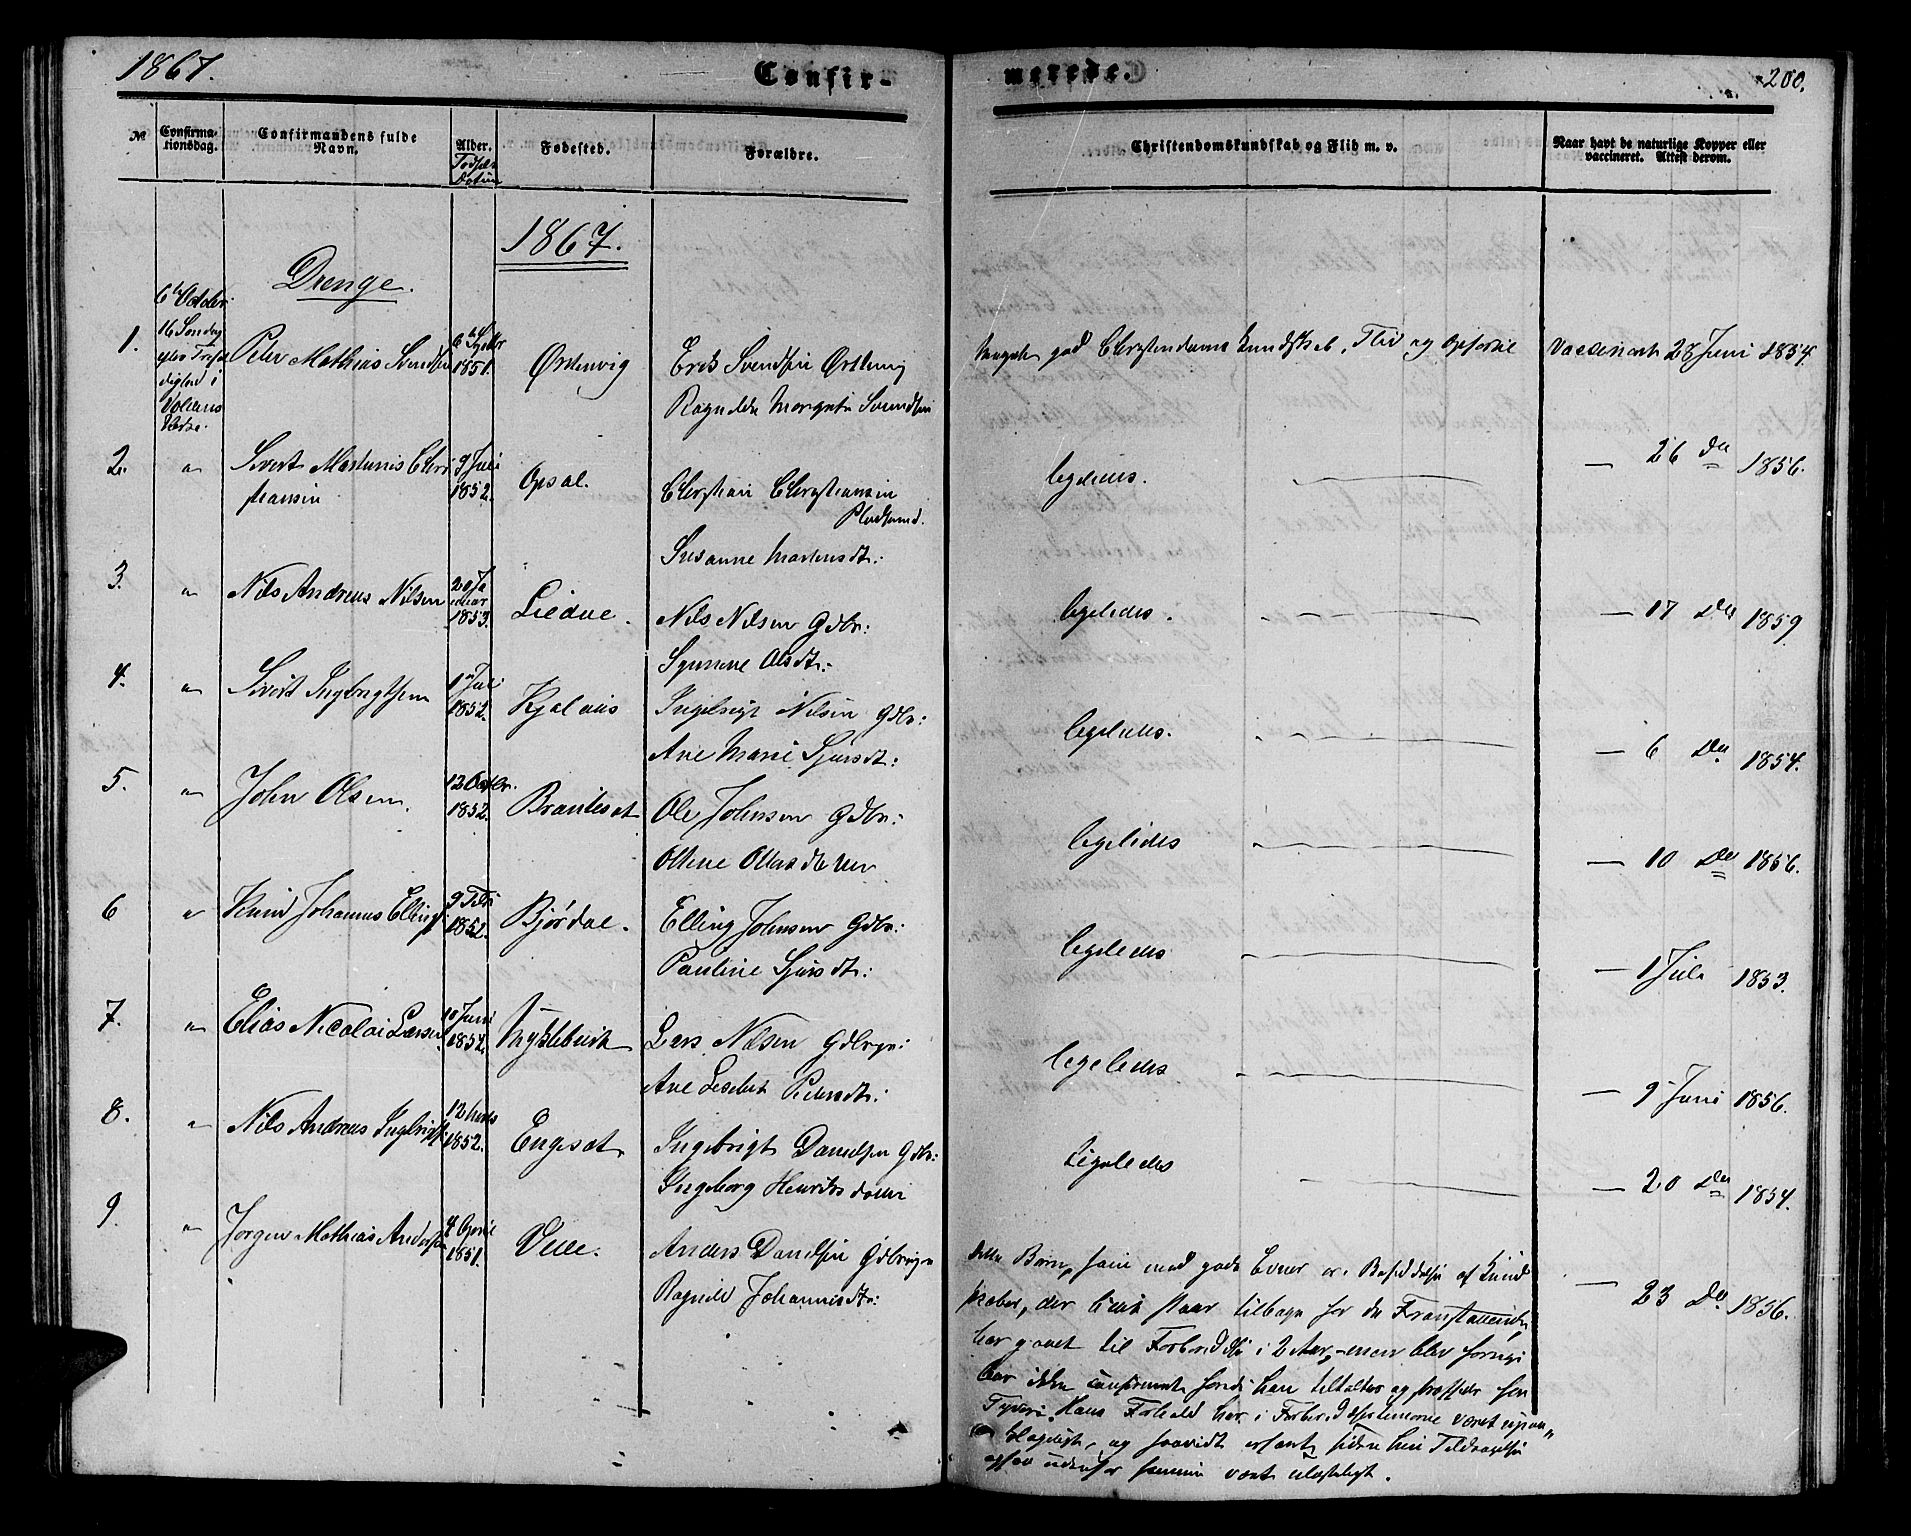 1867.
Confir-
merede.
200.
№
Confirma-
tionsdag.
Confirmandens fulde
Navn.
Alder.
Fødsels
Datum
Fødested.
Forældre.
Christendomskundskab og Flid m. v.
Naar havt de naturlige Kopper eller
vaccineret. Attest derom.
1867.
Drenge.
6te October
16 Søndag
efter Trefol
dighed i
Voldens
Kirke.
1.
Peter Mathias Svendsen
6te Septbr
1851.
Ørstenvig
Erik Svendsen Ørstenvig
Ragnilde Margrete Svendsen
meget god Christendoms Kundskab, Flid og Opførsel
Vaccineret 28 Juni 1854.
2.
"
Sivert Martinus Chri
stiansen
9 Juli
1852.
Opsal.
Christian Christiansen
Pladsmd.
Susanne Martensdt:
ligeledes.
— 26 Do 1856.
3.
"
Nils Andreas Nilsen
20 Ja
nuar
1853.
Liedne.
Nils Nilsen Gdbr:
Synneve Olsdt:
ligeledes.
— 17 Do 1859
4.
"
Sivert Ingebrigtsen
1 Juli
1852.
Kjølaas
Ingebrigt Nilsen Gdbr:
Ane Marie Sjursdt:
ligeledes.
— 6 Do 1854.
5.
"
John Olsen
12 Octbr.
1852.
Brauteset
Ole Johnsen Gdbr:
Oline Olasdatter
ligeledes
— 10 Do 1856.
6
"
Knud Johannes Ellings
9 Febr
1852.
Bjørdal.
Elling Johnsen Gdbr:
Pauline Sjursdt:
ligeledes
— 1 Juli 1853.
7.
"
Elias Nicolai Larsen
10 Juni
1852.
Myklebust
Lars Nilsen Gdbrgr:
Ane Lisebet Pedersdt:
ligeledes
— 9 Juni 1856.
8.
"
Nils Andreas Ingebrigts
12 Marts
1852.
Engeset
Ingebrigt Danielsen Gdbr:
Ingeborg Henriksdatter
Ligeledes
— 20 Do 1854.
9.
"
Jørgen Mathias Anders
4 April
1851.
Velle.
Anders Danielsen Gdbrugr
Ragnild Johannesdt:
Dette Barn, som med gode Evner er i Besiddelse af Kund
skaber, der ikke staar tilbage for de Foranstaaende,
har gaaet til Forberedelse i 2 Aar, – men blev forrige
Aar ikke confirmeret fordi han tiltaltes og straffedes for
Tyveri. Hans Forhold har i Forberedelsestimerne været upaa„
og saavidt erfaret siden hin Tildragelse
ogsaa udenfor samme været ulasteligt.
— 23 Do 1856.